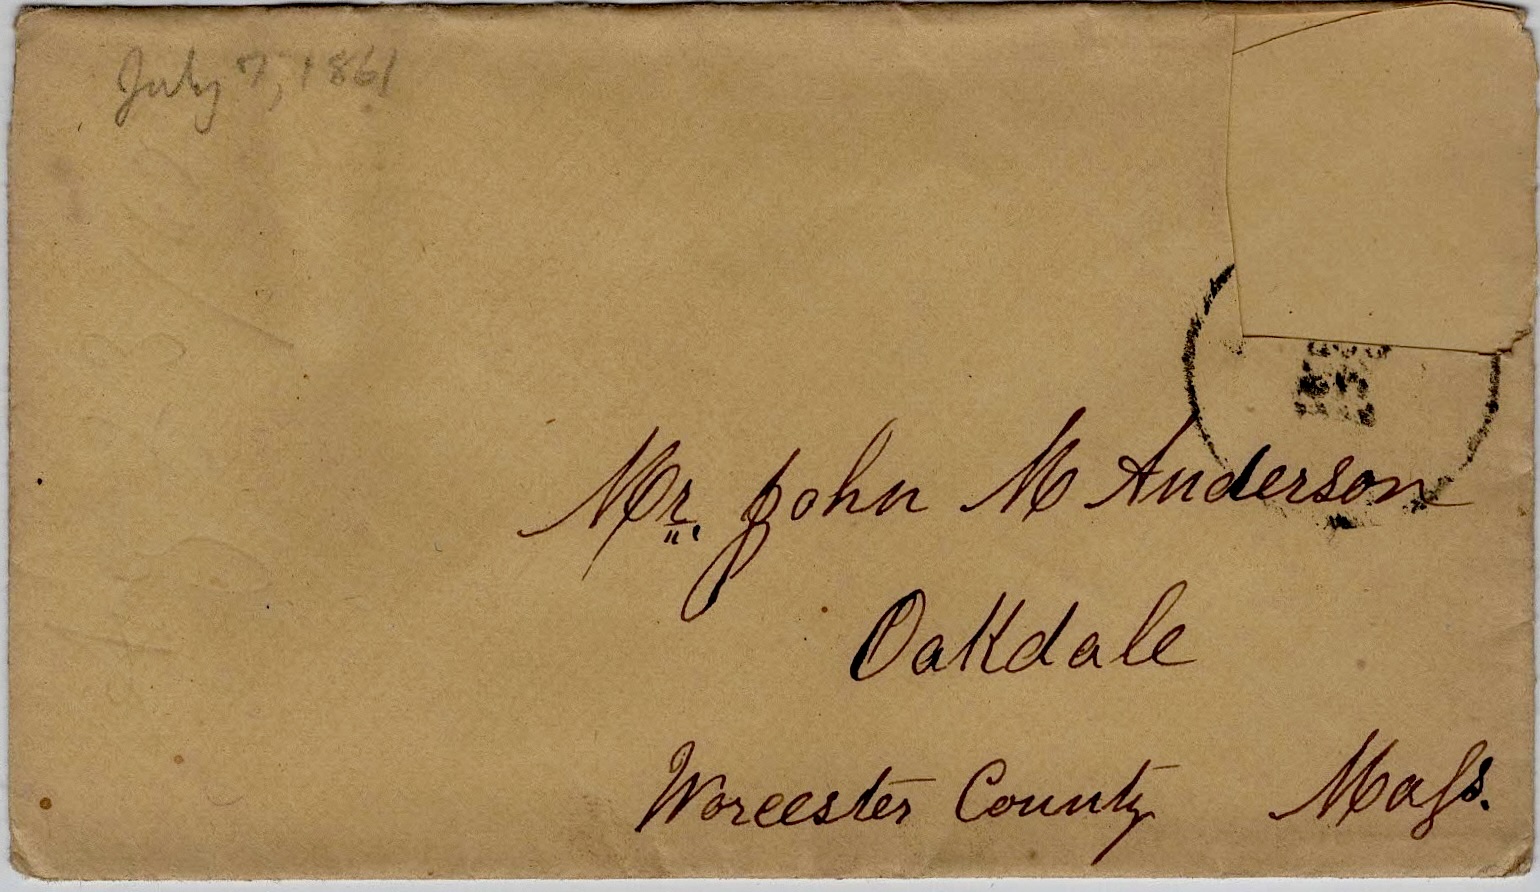 July 7, 1861
Mr. John M Anderson
Oakdale
Worcester County Mass.